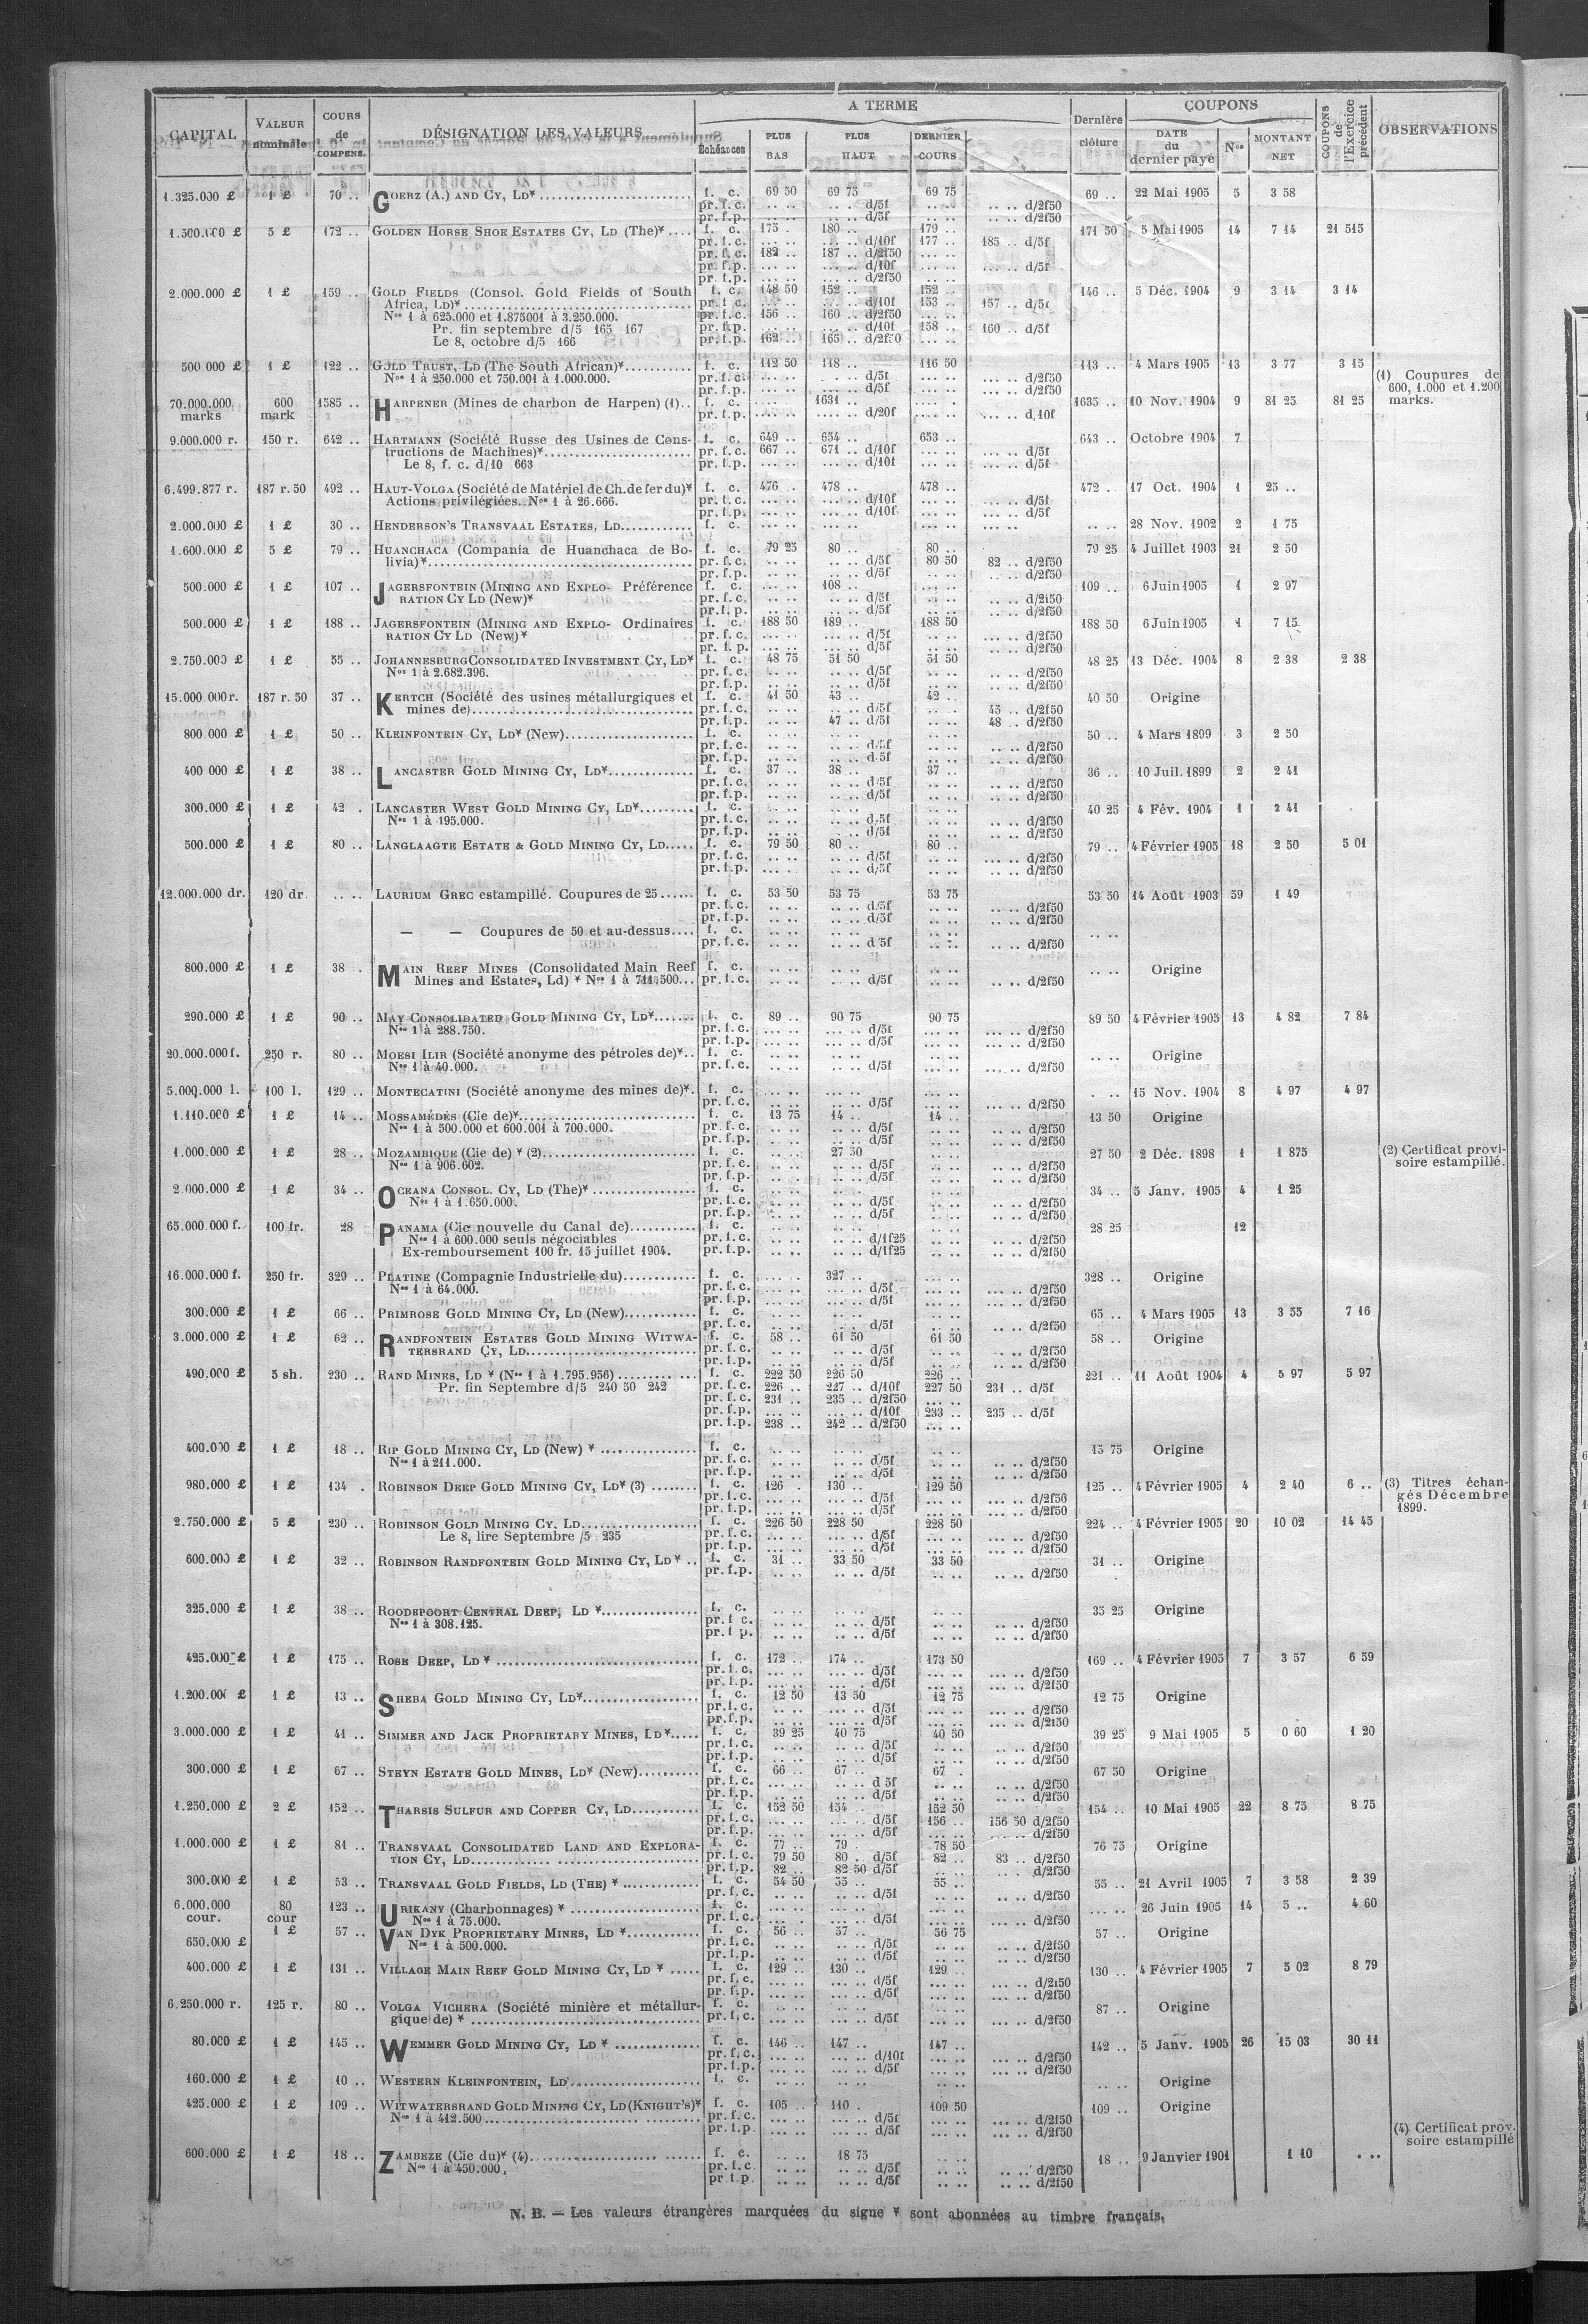 CAPITAL | VALEUR nominale | COURS de COMPENS. | DÉSIGNATION DES VALEURS | A TERME | Dernière clôture | COUPONS | COUPONS de l'Exercice précédent | OBSERVATIONS
Échéances | PLUS BAS | PLUS HAUT | DERNIER COURS | DATE du dernier payé | Nos | MONTANT NET
1.325.000 £ | 1 £ | 70 .. | GOERZ (A.) AND CY, LD* | f. c. | 69 50 | 69 75 | 69 75 | 69 .. | 22 Mai 1905 | 5 | 3 58
pr. f. c. | .. .. | .. .. d/5f | .. .. | .. .. d/2f50
pr. f. p. | .. .. | .. .. d/5f | .. .. | .. .. d/2f50
1.500.000 £ | 5 £ | 172 .. | GOLDEN HORSE SHOE ESTATES CY, LD (The)* | f. c. | 175 . | 180 .. | 179 .. | 171 50 | 5 Mai 1905 | 14 | 7 14 | 21 515
pr. f. c. | .. .. | .. .. d/10f | 177 .. | 185 .. d/5f
pr. f. c. | 182 .. | 187 .. d/2f50 | .. ..
pr. f. p. | .. .. | .. .. d/10f | .. .. | .. .. d/5f
pr. f. p. | .. .. | .. .. d/2f50
2.000.000 £ | 1 £ | 159 .. | GOLD FIELDS (Consol. Gold Fields of South | f. c. | 148 50 | 152 .. | 152 .. | 146 .. | 5 Déc. 1904 | 9 | 3 14 | 3 14
Africa, LD)* | pr. f. c. | .. .. | .. .. d/10f | 153 .. | 157 .. d/5f
Nos 1 à 625.000 et 1.875001 à 3.250.000. | pr. f. c. | 156 .. | 160 .. d/2f50 | .. ..
Pr. fin septembre d/5 165 167 | pr. f. p. | .. .. | .. .. d/10f | 158 .. | 160 .. d/5f
Le 8, octobre d/5 166 | pr. f. p. | 162 .. | 165 .. d/2f50 | .. ..
500.000 £ | 1 £ | 122 .. | GOLD TRUST, LD (The South African)* | f. c. | 112 50 | 118 .. | 116 50 | 113 .. | 4 Mars 1905 | 13 | 3 77 | 3 15 | (1) Coupures de
Nos 1 à 250.000 et 750.001 à 1.000.000. | pr. f. c. | .. .. | .. .. d/5f | .. .. | .. .. d/2f50 | 600, 1.000 et 1.200
pr. f. p. | .. .. | .. .. d/5f | .. .. | .. .. d/2f50 | marks.
70.000.000 marks | 600 mark | 1585 .. | HARPENER (Mines de charbon de Harpen) (1) | f. c. | .. .. | 1631 .. | .. .. | 1635 .. | 10 Nov. 1904 | 9 | 81 25 | 81 25
pr. f. p. | .. .. | .. .. d/20f | .. .. | .. .. d,10f
9.000.000 r. | 150 r. | 642 .. | HARTMANN (Société Russe des Usines de Cons- | f. c. | 649 .. | 654 .. | 653 .. | 643 .. | Octobre 1904 | 7
tructions de Machines)* | pr. f. c. | 667 .. | 671 .. d/10f | .. .. | .. .. d/5f
Le 8, f. c. d/10 663 | pr. f. p. | .. .. | .. .. d/10f | .. .. | .. .. d/5f
6.499.877 r. | 187 r. 50 | 492 .. | HAUT-VOLGA (Société de Matériel de Ch. de fer du)* | f. c. | 476 .. | 478 .. | 478 .. | 472 . | 17 Oct. 1904 | 1 | 25 ..
Actions privilégiées. Nos 1 à 26.666. | pr. f. c. | .. .. | .. .. d/10f | .. .. | .. .. d/5f
pr. f. p. | .. .. | .. .. d/10f | .. .. | .. .. d/5f
2.000.000 £ | 1 £ | 30 .. | HENDERSON'S TRANSVAAL ESTATES, LD | f. c. | .. .. | .. .. | .. .. | .. .. | 28 Nov. 1902 | 2 | 1 75
1.600.000 £ | 5 £ | 79 .. | HUANCHACA (Compania de Huanchaca de Bo- | f. c. | 79 25 | 80 .. | 80 .. | 79 25 | 4 Juillet 1903 | 21 | 2 50
livia)* | pr. f. c. | .. .. | .. .. d/5f | 80 50 | 82 .. d/2f50
pr. f. p. | .. .. | .. .. d/5f | .. .. | .. .. d/2f50
500.000 £ | 1 £ | 107 .. | JAGERSFONTEIN (MINING AND EXPLO- Préférence | f. c. | .. .. | 108 .. | .. .. | 109 .. | 6 Juin 1905 | 1 | 2 97
RATION CY LD (New)* | pr. f. c. | .. .. | .. .. d/5f | .. .. | .. .. d/2f50
pr. f. p. | .. .. | .. .. d/5f | .. .. | .. .. d/2f50
500.000 £ | 1 £ | 188 .. | JAGERSFONTEIN (MINING AND EXPLO- Ordinaires | f. c. | 188 50 | 189 .. | 188 50 | 188 50 | 6 Juin 1905 | 1 | 7 15
RATION CY LD (New)* | pr. f. c. | .. .. | .. .. d/5f | .. .. | .. .. d/2f50
pr. f. p. | .. .. | .. .. d/5f | .. .. | .. .. d/2f50
2.750.000 £ | 1 £ | 55 .. | JOHANNESBURG CONSOLIDATED INVESTMENT CY, LD* | f. c. | 48 75 | 51 50 | 51 50 | 48 25 | 13 Déc. 1904 | 8 | 2 38 | 2 38
Nos 1 à 2.682.396. | pr. f. c. | .. .. | .. .. d/5f | .. .. | .. .. d/2f50
pr. f. p. | .. .. | .. .. d/5f | .. .. | .. .. d/2f50
15.000.000 r. | 187 r. 50 | 37 .. | KERTCH (Société des usines métallurgiques et | f. c. | 41 50 | 43 .. | 42 .. | 40 50 | Origine
mines de) | pr. f. c. | .. .. | .. .. d/5f | .. .. | 45 .. d/2f50
pr. f. p. | .. .. | 47 .. d/5f | .. .. | 48 .. d/2f50
800.000 £ | 1 £ | 50 .. | KLEINFONTEIN CY, LD* (New) | f. c. | .. .. | .. .. | .. .. | 50 .. | 4 Mars 1899 | 3 | 2 50
pr. f. c. | .. .. | .. .. d/5f | .. .. | .. .. d/2f50
pr. f. p. | .. .. | .. .. d/5f | .. .. | .. .. d/2f50
400.000 £ | 1 £ | 38 .. | LANCASTER GOLD MINING CY, LD* | f. c. | 37 .. | 38 .. | 37 .. | 36 .. | 10 Juil. 1899 | 2 | 2 41
pr. f. c. | .. .. | .. .. d/5f | .. .. | .. .. d/2f50
pr. f. p. | .. .. | .. .. d/5f | .. .. | .. .. d/2f50
300.000 £ | 1 £ | 42 . | LANCASTER WEST GOLD MINING CY, LD* | f. c. | .. .. | .. .. | .. .. | 40 25 | 4 Fév. 1904 | 1 | 2 41
Nos 1 à 195.000. | pr. f. c. | .. .. | .. .. d/5f | .. .. | .. .. d/2f50
pr. f. p. | .. .. | .. .. d/5f | .. .. | .. .. d/2f50
500.000 £ | 1 £ | 80 .. | LANGLAAGTE ESTATE & GOLD MINING CY, LD | f. c. | 79 50 | 80 .. | 80 .. | 79 .. | 4 Février 1905 | 18 | 2 50 | 5 01
pr. f. c. | .. .. | .. .. d/5f | .. .. | .. .. d/2f50
pr. f. p. | .. .. | .. .. d/5f | .. .. | .. .. d/2f50
12.000.000 dr. | 120 dr | .. .. | LAURIUM GREC estampillé. Coupures de 25 | f. c. | 53 50 | 53 75 | 53 75 | 53 50 | 14 Août 1903 | 59 | 1 49
pr. f. c. | .. .. | .. .. d/5f | .. .. | .. .. d/2f50
pr. f. p. | .. .. | .. .. d/5f | .. .. | .. .. d/2f50
— — Coupures de 50 et au-dessus | f. c. | .. .. | .. .. | .. .. | .. ..
pr. f. c. | .. .. | .. .. d/5f | .. .. | .. .. d/2f50
800.000 £ | 1 £ | 38 . | MAIN REEF MINES (Consolidated Main Reef | f. c. | .. .. | .. .. | .. .. | .. .. | Origine
Mines and Estates, Ld) * Nos 1 à 711.500 | pr. f. c. | .. .. | .. .. d/5f | .. .. | .. .. d/2f50
290.000 £ | 1 £ | 90 .. | MAY CONSOLIDATED GOLD MINING CY, LD* | f. c. | 89 .. | 90 75 | 90 75 | 89 50 | 4 Février 1905 | 13 | 4 82 | 7 84
Nos 1 à 288.750. | pr. f. c. | .. .. | .. .. d/5f | .. .. | .. .. d/2f50
pr. f. p. | .. .. | .. .. d/5f | .. .. | .. .. d/2f50
20.000.000 f. | 250 r. | 80 .. | MOESI ILIR (Société anonyme des pétroles de)* | f. c. | .. .. | .. .. | .. .. | .. .. | Origine
Nos 1 à 40.000. | pr. f. c. | .. .. | .. .. d/5f | .. .. | .. .. d/2f50
5.000.000 l. | 100 l. | 129 .. | MONTECATINI (Société anonyme des mines de)* | f. c. | .. .. | .. .. | .. .. | . .. | 15 Nov. 1904 | 8 | 4 97 | 4 97
pr. f. c. | .. .. | .. .. d/5f | .. .. | .. .. d/2f50
1.110.000 £ | 1 £ | 14 .. | MOSSAMÉDÈS (Cie de)* | f. c. | 13 75 | 14 .. | 14 .. | 13 50 | Origine
Nos 1 à 500.000 et 600.001 à 700.000. | pr. f. c. | .. .. | .. .. d/5f | .. .. | .. .. d/2f50
pr. f. p. | .. .. | .. .. d/5f | .. .. | .. .. d/2f50
1.000.000 £ | 1 £ | 28 .. | MOZAMBIQUE (Cie de) * (2) | f. c. | .. .. | 27 50 | .. .. | 27 50 | 2 Déc. 1898 | 1 | 1 875 | (2) Certificat provi-
Nos 1 à 906.602. | pr. f. c. | .. .. | .. .. d/5f | .. .. | .. .. d/2f50 | soire estampillé.
pr. f. p. | .. .. | .. .. d/5f | .. .. | .. .. d/2f50
2.000.000 £ | 1 £ | 34 .. | OCEANA CONSOL. CY, LD (The)* | f. c. | .. .. | .. .. | .. .. | 34 .. | 5 Janv. 1905 | 4 | 1 25
Nos 1 à 1.650.000. | pr. f. c. | .. .. | .. .. d/5f | .. .. | .. .. d/2f50
pr. f. p. | .. .. | .. .. d/5f | .. .. | .. .. d/2f50
65.000.000 f. | 100 fr. | 28 | PANAMA (Cie nouvelle du Canal de) | f. c. | .. .. | .. .. | .. .. | 28 25 | 12
Nos 1 à 600.000 seuls négociables | pr. f. c. | .. .. | .. .. d/1f25 | .. .. | .. .. d/2f50
Ex-remboursement 100 fr. 15 juillet 1904. | pr. f. p. | .. .. | .. .. d/1f25 | .. .. | .. .. d/2f50
16.000.000 f. | 250 fr. | 329 .. | PLATINE (Compagnie Industrielle du) | f. c. | .. .. | 327 .. | .. .. | 328 .. | Origine
Nos 1 à 64.000. | pr. f. c. | .. .. | .. .. d/5f | .. .. | .. .. d/2f50
pr. f. p. | .. .. | .. .. d/5f | .. .. | .. .. d/2f50
300.000 £ | 1 £ | 66 .. | PRIMROSE GOLD MINING CY, LD (New) | f. c. | .. .. | .. .. | .. .. | 65 .. | 4 Mars 1905 | 13 | 3 55 | 7 16
pr. f. c. | .. .. | .. .. d/5f | .. .. | .. .. d/2f50
3.000.000 £ | 1 £ | 62 .. | RANDFONTEIN ESTATES GOLD MINING WITWA- | f. c. | 58 .. | 61 50 | 61 50 | 58 .. | Origine
TERSRAND CY, LD | pr. f. c. | .. .. | .. .. d/5f | .. .. | .. .. d/2f50
pr. f. p. | .. .. | .. .. d/5f | .. .. | .. .. d/2f50
490.000 £ | 5 sh. | 230 .. | RAND MINES, LD * (Nos 1 à 1.795.956) | f. c. | 222 50 | 226 50 | 226 .. | 221 .. | 11 Août 1904 | 4 | 5 97 | 5 97
Pr. fin Septembre d/5 240 50 242 | pr. f. c. | 226 .. | 227 .. d/10f | 227 50 | 231 .. d/5f
pr. f. c. | 231 .. | 235 .. d/2f50 | .. ..
pr. f. p. | .. .. | .. .. d/10f | 233 .. | 235 .. d/5f
pr. f. p. | 238 .. | 242 .. d/2f50 | .. ..
400.000 £ | 1 £ | 18 .. | RIP GOLD MINING CY, LD (New) * | f. c. | .. .. | .. .. | .. .. | 15 75 | Origine
Nos 1 à 211.000. | pr. f. c. | .. .. | .. .. d/5f | .. .. | .. .. d/2f50
pr. f. p. | .. .. | .. .. d/5f | .. .. | .. .. d/2f50
980.000 £ | 1 £ | 134 . | ROBINSON DEEP GOLD MINING CY, LD* (3) | f. c. | 126 . | 130 .. | 129 50 | 125 .. | 4 Février 1905 | 4 | 2 40 | 6 .. | (3) Titres échan-
pr. f. c. | .. .. | .. .. d/5f | .. .. | .. .. d/2f50 | gés Décembre
pr. f. p. | .. .. | .. .. d/5f | .. .. | .. .. d/2f50 | 1899.
2.750.000 £ | 5 £ | 230 .. | ROBINSON GOLD MINING CY, LD | f. c. | 226 50 | 228 50 | 228 50 | 224 .. | 4 Février 1905 | 20 | 10 02 | 14 45
Le 8, lire Septembre /5 235 | pr. f. c. | .. .. | .. .. d/5f | .. .. | .. .. d/2f50
pr. f. p. | .. .. | .. .. d/5f | .. .. | .. .. d/2f50
600.000 £ | 1 £ | 32 .. | ROBINSON RANDFONTEIN GOLD MINING CY, LD * | f. c. | 31 .. | 33 50 | 33 50 | 31 .. | Origine
pr. f. p. | .. .. | .. .. d/5f | .. .. | .. .. d/2f50
325.000 £ | 1 £ | 38 .. | ROODEPOORT CENTRAL DEEP, LD * | f. c. | .. .. | .. .. | .. .. | 35 25 | Origine
Nos 1 à 308.125. | pr. f c. | .. .. | .. .. d/5f | .. .. | .. .. d/2f50
pr. f p. | .. .. | .. .. d/5f | .. .. | .. .. d/2f50
425.000 £ | 1 £ | 175 .. | ROSE DEEP, LD * | f. c. | 172 .. | 174 .. | 173 50 | 169 .. | 4 Février 1905 | 7 | 3 57 | 6 59
pr. f. c. | .. .. | .. .. d/5f | .. .. | .. .. d/2f50
pr. f. p. | .. .. | .. .. d/5f | .. .. | .. .. d/2f50
1.200.000 £ | 1 £ | 13 .. | SHEBA GOLD MINING CY, LD* | f. c. | 12 50 | 13 50 | 12 75 | 12 75 | Origine
pr. f. c. | .. .. | .. .. d/5f | .. .. | .. .. d/2f50
pr. f. p. | .. .. | .. .. d/5f | .. .. | .. .. d/2f50
3.000.000 £ | 1 £ | 41 .. | SIMMER AND JACK PROPRIETARY MINES, LD* | f. c. | 39 25 | 40 75 | 40 50 | 39 25 | 9 Mai 1905 | 5 | 0 60 | 1 20
pr. f. c. | .. .. | .. .. d/5f | .. .. | .. .. d/2f50
pr. f. p. | .. .. | .. .. d/5f | .. .. | .. .. d/2f50
300.000 £ | 1 £ | 67 .. | STEYN ESTATE GOLD MINES, LD* (New) | f. c. | 66 .. | 67 .. | 67 . | 67 50 | Origine
pr. f. c. | .. .. | .. .. d 5f | .. .. | .. .. d/2f50
pr. f. p. | .. .. | .. .. d/5f | .. .. | .. .. d/2f50
1.250.000 £ | 2 £ | 152 .. | THARSIS SULFUR AND COPPER CY, LD | f. c. | 152 50 | 154 .. | 152 50 | 154 .. | 10 Mai 1905 | 22 | 8 75 | 8 75
pr. f. c. | .. .. | .. .. d/5f | 156 .. | 156 50 d/2f50
pr. f. p. | .. .. | .. .. d/5f | .. .. | .. .. d/2f50
1.000.000 £ | 1 £ | 81 .. | TRANSVAAL CONSOLIDATED LAND AND EXPLORA- | f. c. | 77 .. | 79 . | 78 50 | 76 75 | Origine
TION CY, LD | pr. f. c. | 79 50 | 80 . d/5f | 82 .. | 83 .. d/2f50
pr. f. p. | 82 .. | 82 50 d/5f | .. .. | .. .. d/2f50
300.000 £ | 1 £ | 53 .. | TRANSVAAL GOLD FIELDS, LD (THE) * | f. c. | 54 50 | 55 .. | 55 .. | 55 .. | 21 Avril 1905 | 7 | 3 58 | 2 39
pr. f. c. | .. .. | .. .. d/5f | .. .. | .. .. d/2f50
6.000.000 cour. | 80 cour | 123 .. | URIKANY (Charbonnages) * | f. c. | .. .. | .. .. | .. .. | .. .. | 26 Juin 1905 | 14 | 5 .. | 4 60
Nos 1 à 75.000. | pr. f. c. | .. .. | .. .. d/5f | .. .. | .. .. d/2f50
650.000 £ | 1 £ | 57 .. | VAN DYK PROPRIETARY MINES, LD * | f. c. | 56 .. | 57 .. | 56 75 | 57 .. | Origine
Nos 1 à 500.000. | pr. f. c. | .. .. | .. .. d/5f | .. .. | .. .. d/2f50
pr. f. p. | .. .. | .. .. d/5f | .. .. | .. .. d/2f50
400.000 £ | 1 £ | 131 .. | VILLAGE MAIN REEF GOLD MINING CY, LD * | f. c. | 129 .. | 130 .. | 129 .. | 130 .. | 4 Février 1905 | 7 | 5 02 | 8 79
pr. f. c. | .. .. | .. .. d/5f | .. .. | .. .. d/2f50
pr. f. p. | .. .. | .. .. d/5f | .. .. | .. .. d/2f50
6.250.000 r. | 125 r. | 80 .. | VOLGA VICHERA (Société minière et métallur- | f. c. | .. .. | .. .. | .. .. | 87 .. | Origine
gique de) * | pr. f. c. | .. .. | .. .. d/5f | .. .. | .. .. d/2f50
80.000 £ | 1 £ | 145 .. | WEMMER GOLD MINING CY, LD * | f. c. | 146 .. | 147 .. | 147 .. | 142 .. | 5 Janv. 1905 | 26 | 15 03 | 30 11
pr. f. c. | .. .. | .. .. d/10f | .. .. | .. .. d/2f50
pr. f. p. | .. .. | .. .. d/5f | .. .. | .. .. d/2f50
160.000 £ | 1 £ | 10 .. | WESTERN KLEINFONTEIN, LD | f. c. | .. .. | .. .. | .. .. | .. .. | Origine
425.000 £ | 1 £ | 109 .. | WITWATERSRAND GOLD MINING CY, LD (KNIGHT'S)* | f. c. | 105 .. | 110 . | 109 50 | 109 .. | Origine
Nos 1 à 412.500 | pr. f. c. | .. .. | .. .. d/5f | .. .. | .. .. d/2f50
pr. f. p. | .. .. | .. .. d/5f | .. .. | .. .. d/2f50 | (4) Certificat prov.
soire estampillé
600.000 £ | 1 £ | 18 .. | ZAMBEZE (Cie du)* (4) | f. c. | .. .. | 18 75 | .. .. | 18 .. | 9 Janvier 1901 | 1 10 | . ..
Nos 1 à 450.000. | pr. f. c. | .. .. | .. .. d/5f | .. .. | .. .. d/2f50
pr. f. p. | .. .. | .. .. d/5f | .. .. | .. .. d/2f50
N. B. — Les valeurs étrangères marquées du signe * sont abonnées au timbre français.